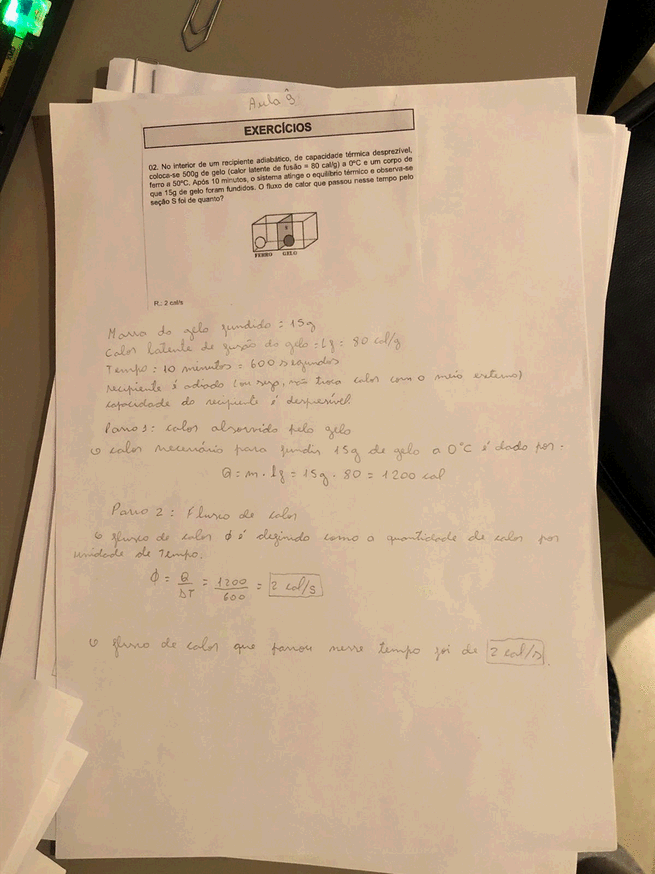 Aula 9
EXERCÍCIOS
02. No interior de um recipiente adiabático, de capacidade térmica desprezível,
coloca-se 500g de gelo (calor latente de fusão = 80 cal/g) a 0°C e um corpo de
ferro a 50°C. Após 10 minutos, o sistema atinge o equilíbrio térmico e observa-se
que 15g de gelo foram fundidos. O fluxo de calor que passou nesse tempo pelo
seção S foi de quanto?
S
FERRO GELO
R.: 2 cal/s
Massa do gelo fundido = 15g
Calor latente de fusão do gelo = Lf = 80 cal/g
Tempo = 10 minutos = 600 segundos
recipiente é (ou seja, não troca calor com o meio externo)
capacidade do recipiente é
Passo 1: calor absorvido pelo gelo
O calor necessário para fundir 15g de gelo a 0°C é dado por:
Q = m · Lf = 15g · 80 = 1200 cal
Passo 2: Fluxo de calor
O fluxo de calor ϕ é definido como a quantidade de calor por
unidade de Tempo:
ϕ = Q/ΔT = 1200/600 = 2 cal/s
O fluxo de calor que passou nesse tempo foi de 2 cal/s.